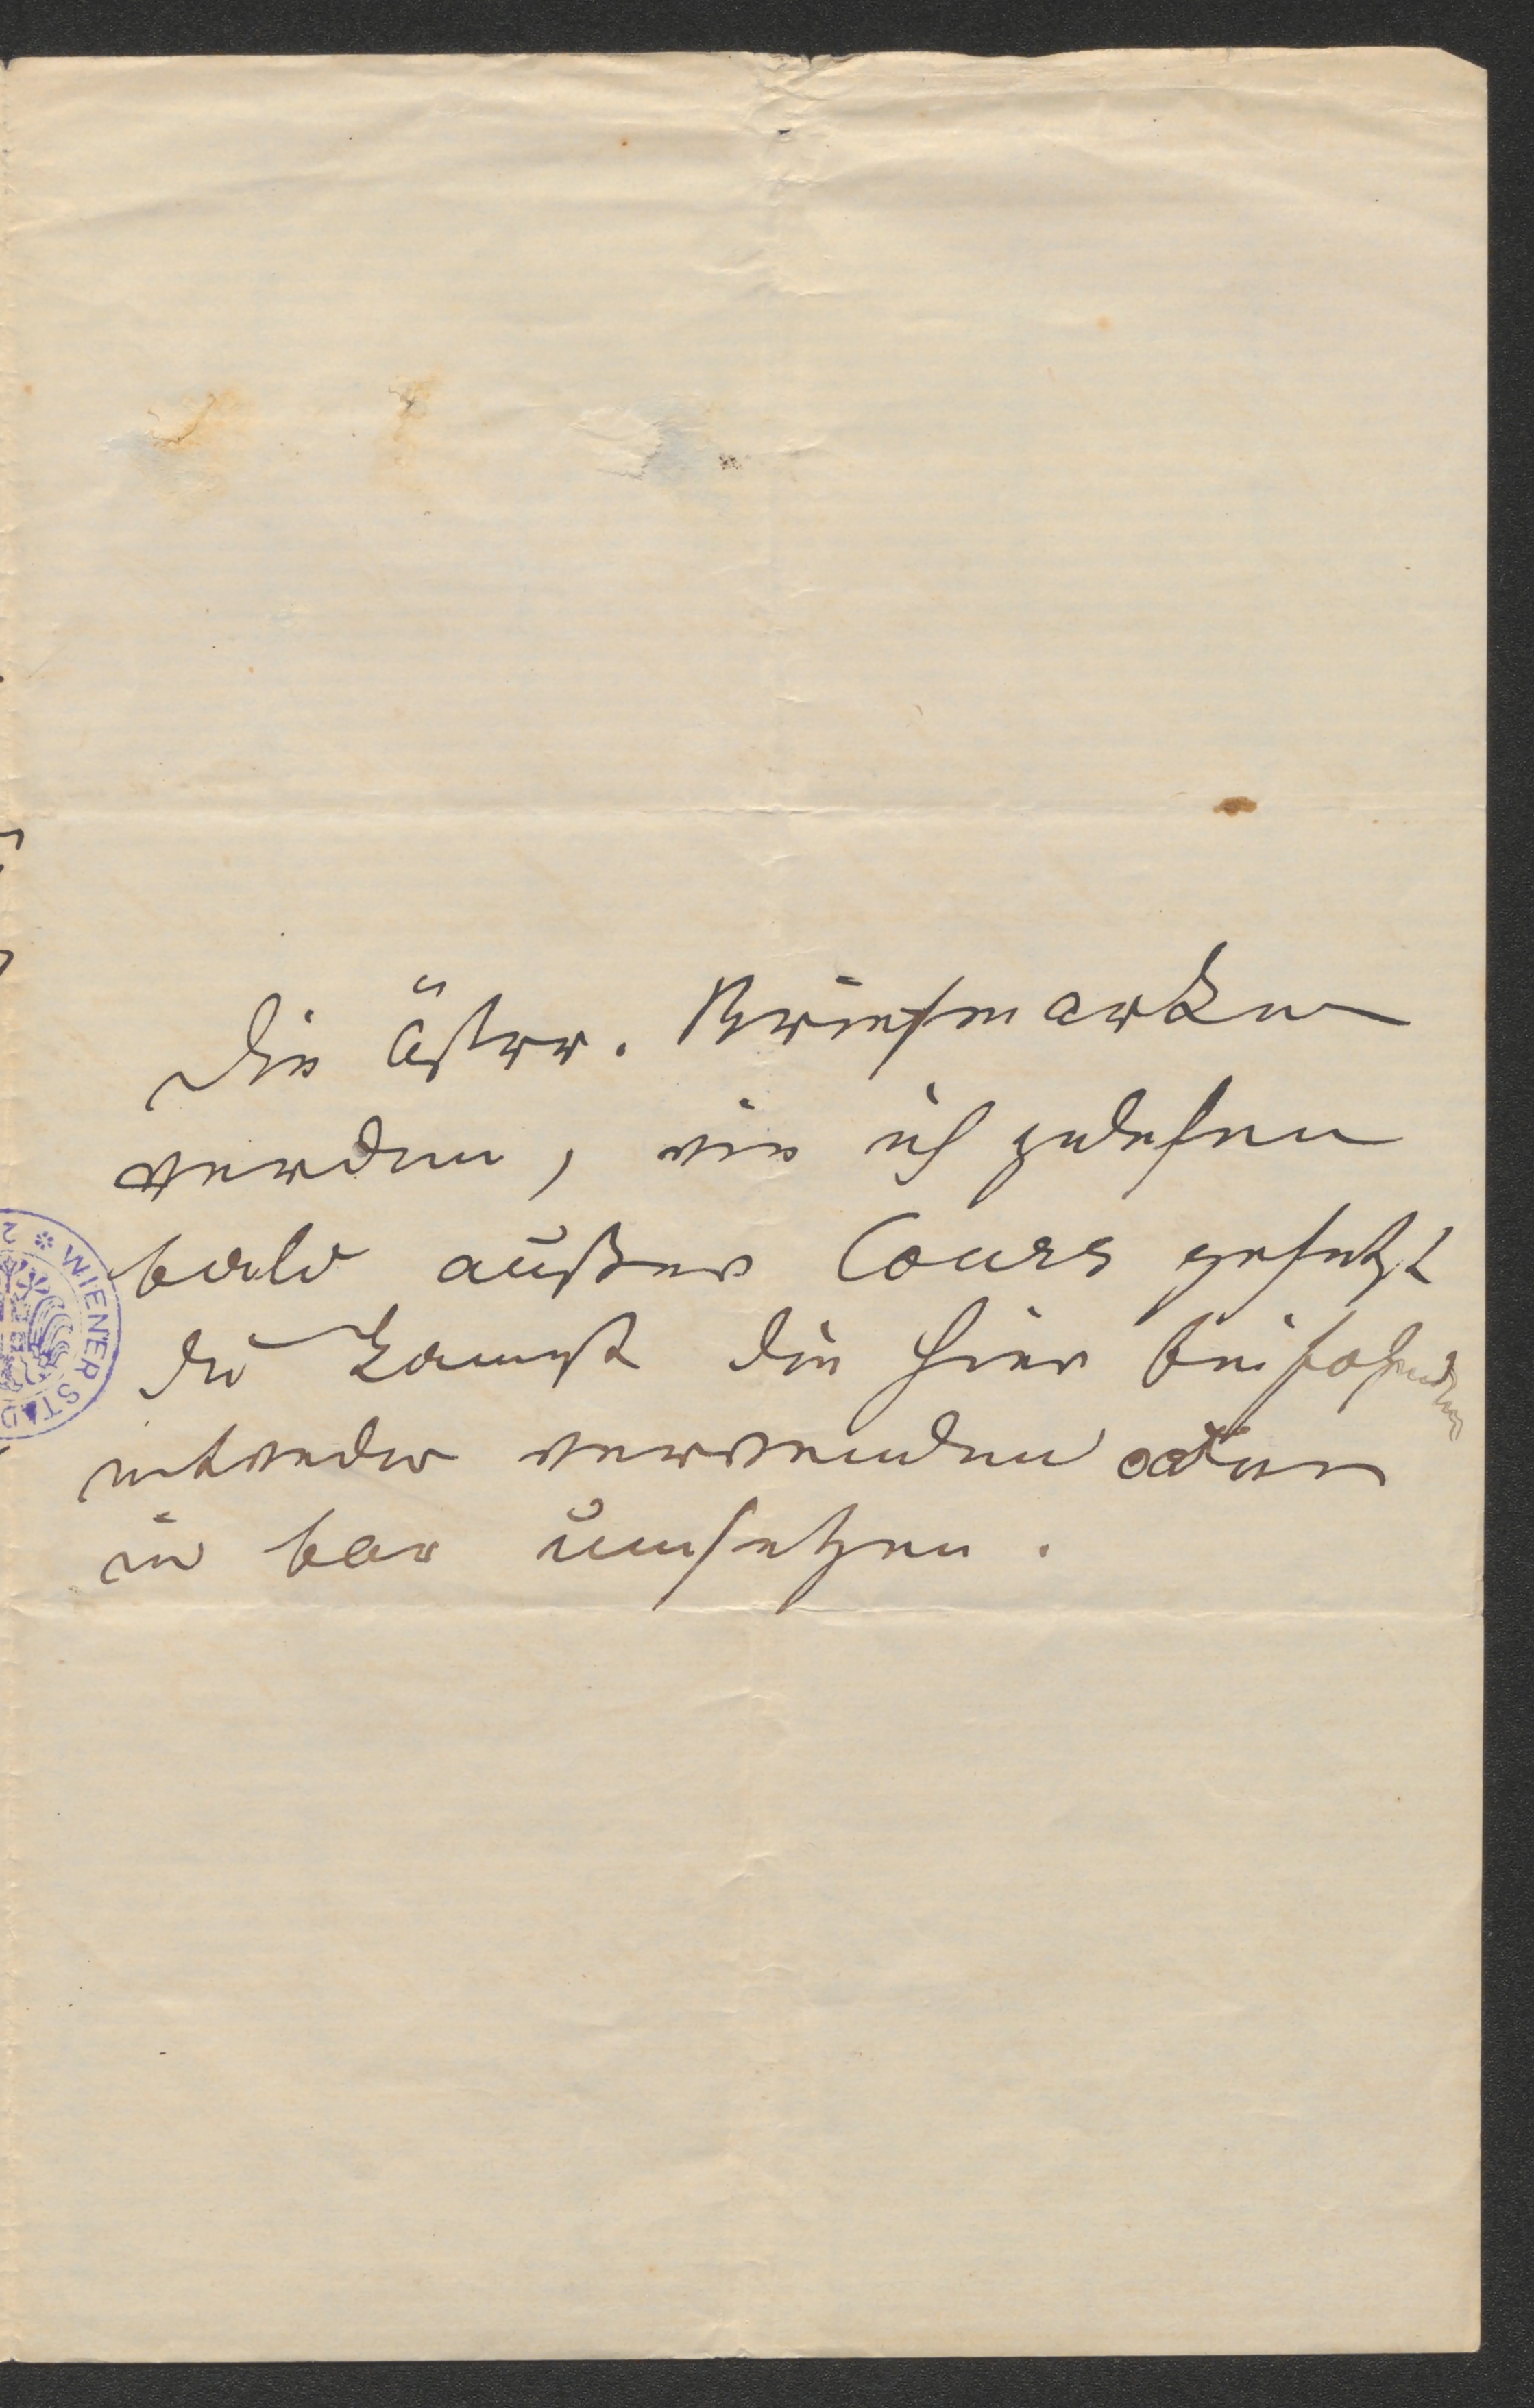 Die österr. Briefmarken
werden, wie ich gelesen
bald außer Cours gesetzt
du kannst die hier
entweder verwenden oder
in bar umsetzen.
WIENER STAD